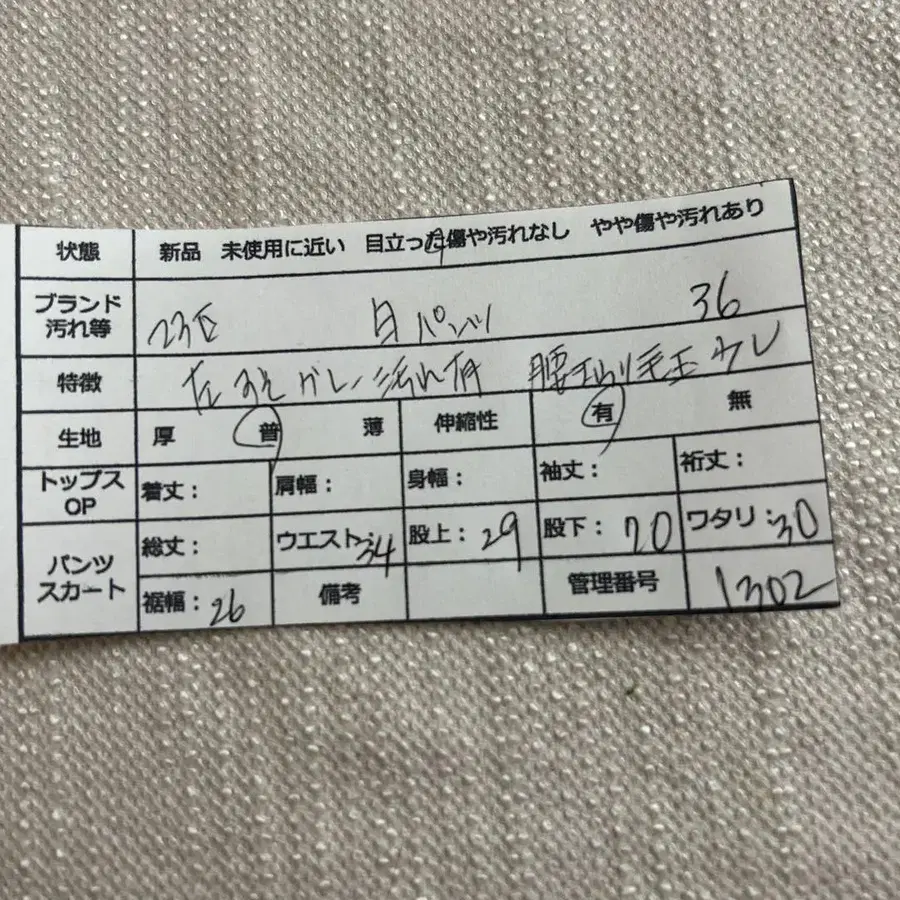 状態 新品 未使用に近い 目立った傷や汚れなし やや傷や汚れあり
ブランド 汚れ等 23区 白パンツ 36
特徴 左すそ 汚れ有 腰まわり毛玉
生地 厚 普 薄 伸縮性 有 無
トップス OP 着丈： 肩幅： 身幅： 袖丈： 裄丈：
パンツ スカート 総丈： ウエスト：34 股上：29 股下：70 ワタリ：30
裾幅：26 備考 管理番号 1302